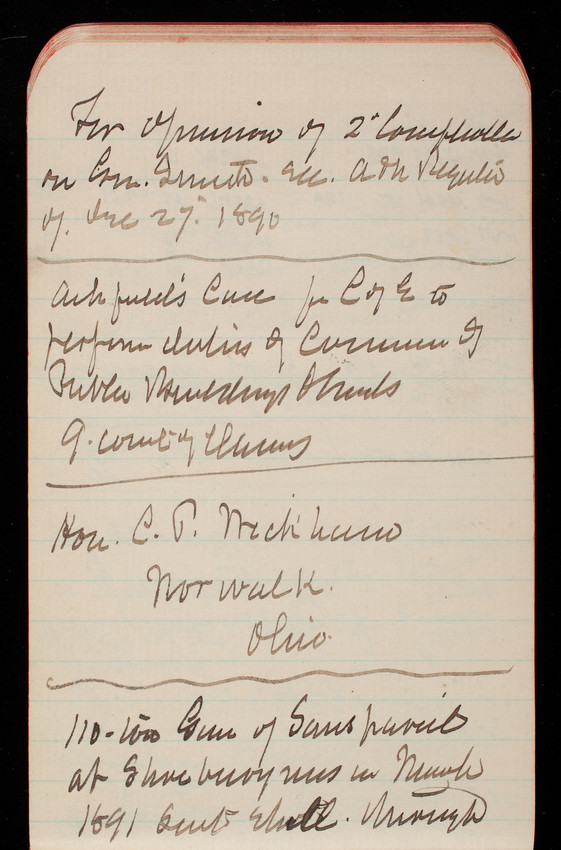 For opinion of 2d Comptroller
on Com. see.
of Dec 27. 1890
case for C of E to
perform duties of Commr of
Public Buildings & Grounds
9. court of Claims
Hon. C. P. Wickham
Norwalk.
Ohio.
110-ton Gun of Sanspareil
at Shoeburyness in March
1891 sent shell. through